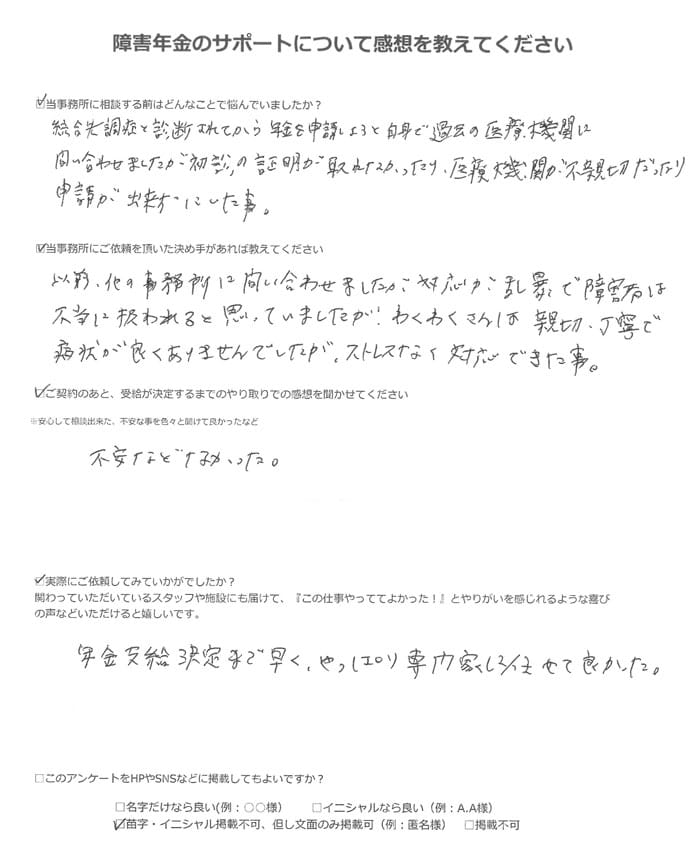 障害年金のサポートについて感想を教えてください
☑当事務所に相談する前はどんなことで悩んでいましたか？
統合失調症と診断されてから年金を申請しようと自身で過去の医療機関に
問い合わせましたが初診の証明が取れなかったり、医療機関が不親切だったり
申請が出来ずにいた事。
☑当事務所にご依頼を頂いた決め手があれば教えてください
以前、他の事務所に問い合わせましたが対応が乱暴で障害者は
不当に扱われると思っていましたが、わくわくさんは親切、丁寧で
病状が良くありませんでしたが、ストレスなく対応できた事。
☑ご契約のあと、受給が決定するまでのやり取りでの感想を聞かせてください
※安心して相談出来た、不安な事を色々と聞けて良かったなど
不安などなかった。
☑実際にご依頼してみていかがでしたか？
関わっていただいているスタッフや施設にも届けて、『この仕事やっててよかった！』とやりがいを感じれるような喜び
の声などいただけると嬉しいです。
年金支給決定まで早く、やっぱり専門家に任せて良かった。
☐このアンケートをHPやSNSなどに掲載してもよいですか？
☐名字だけなら良い(例：〇〇様) ☐イニシャルなら良い（例：A.A様）
☑苗字・イニシャル掲載不可、但し文面のみ掲載可（例：匿名様） ☐掲載不可